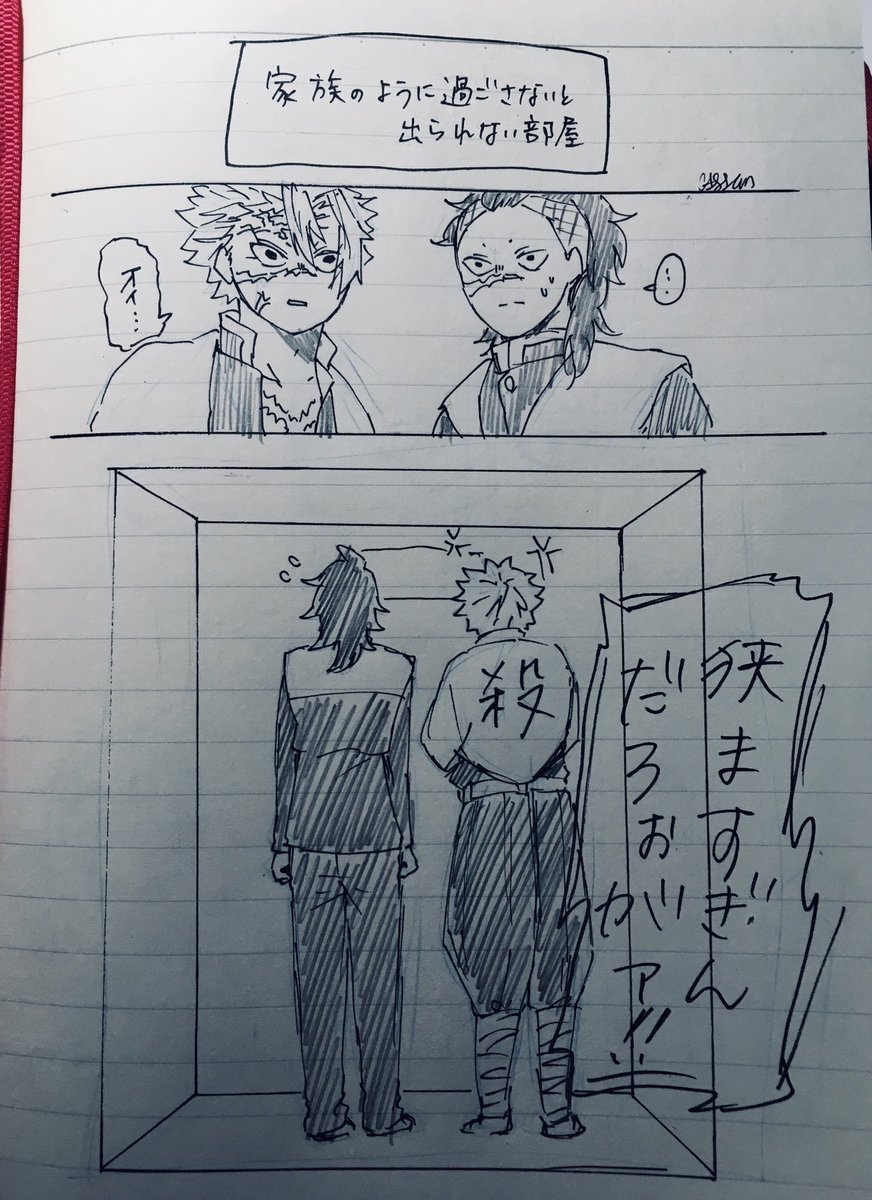 家族のように過ごさないと
出られない部屋
…
狭ますぎん
だろぉがァ!!
殺